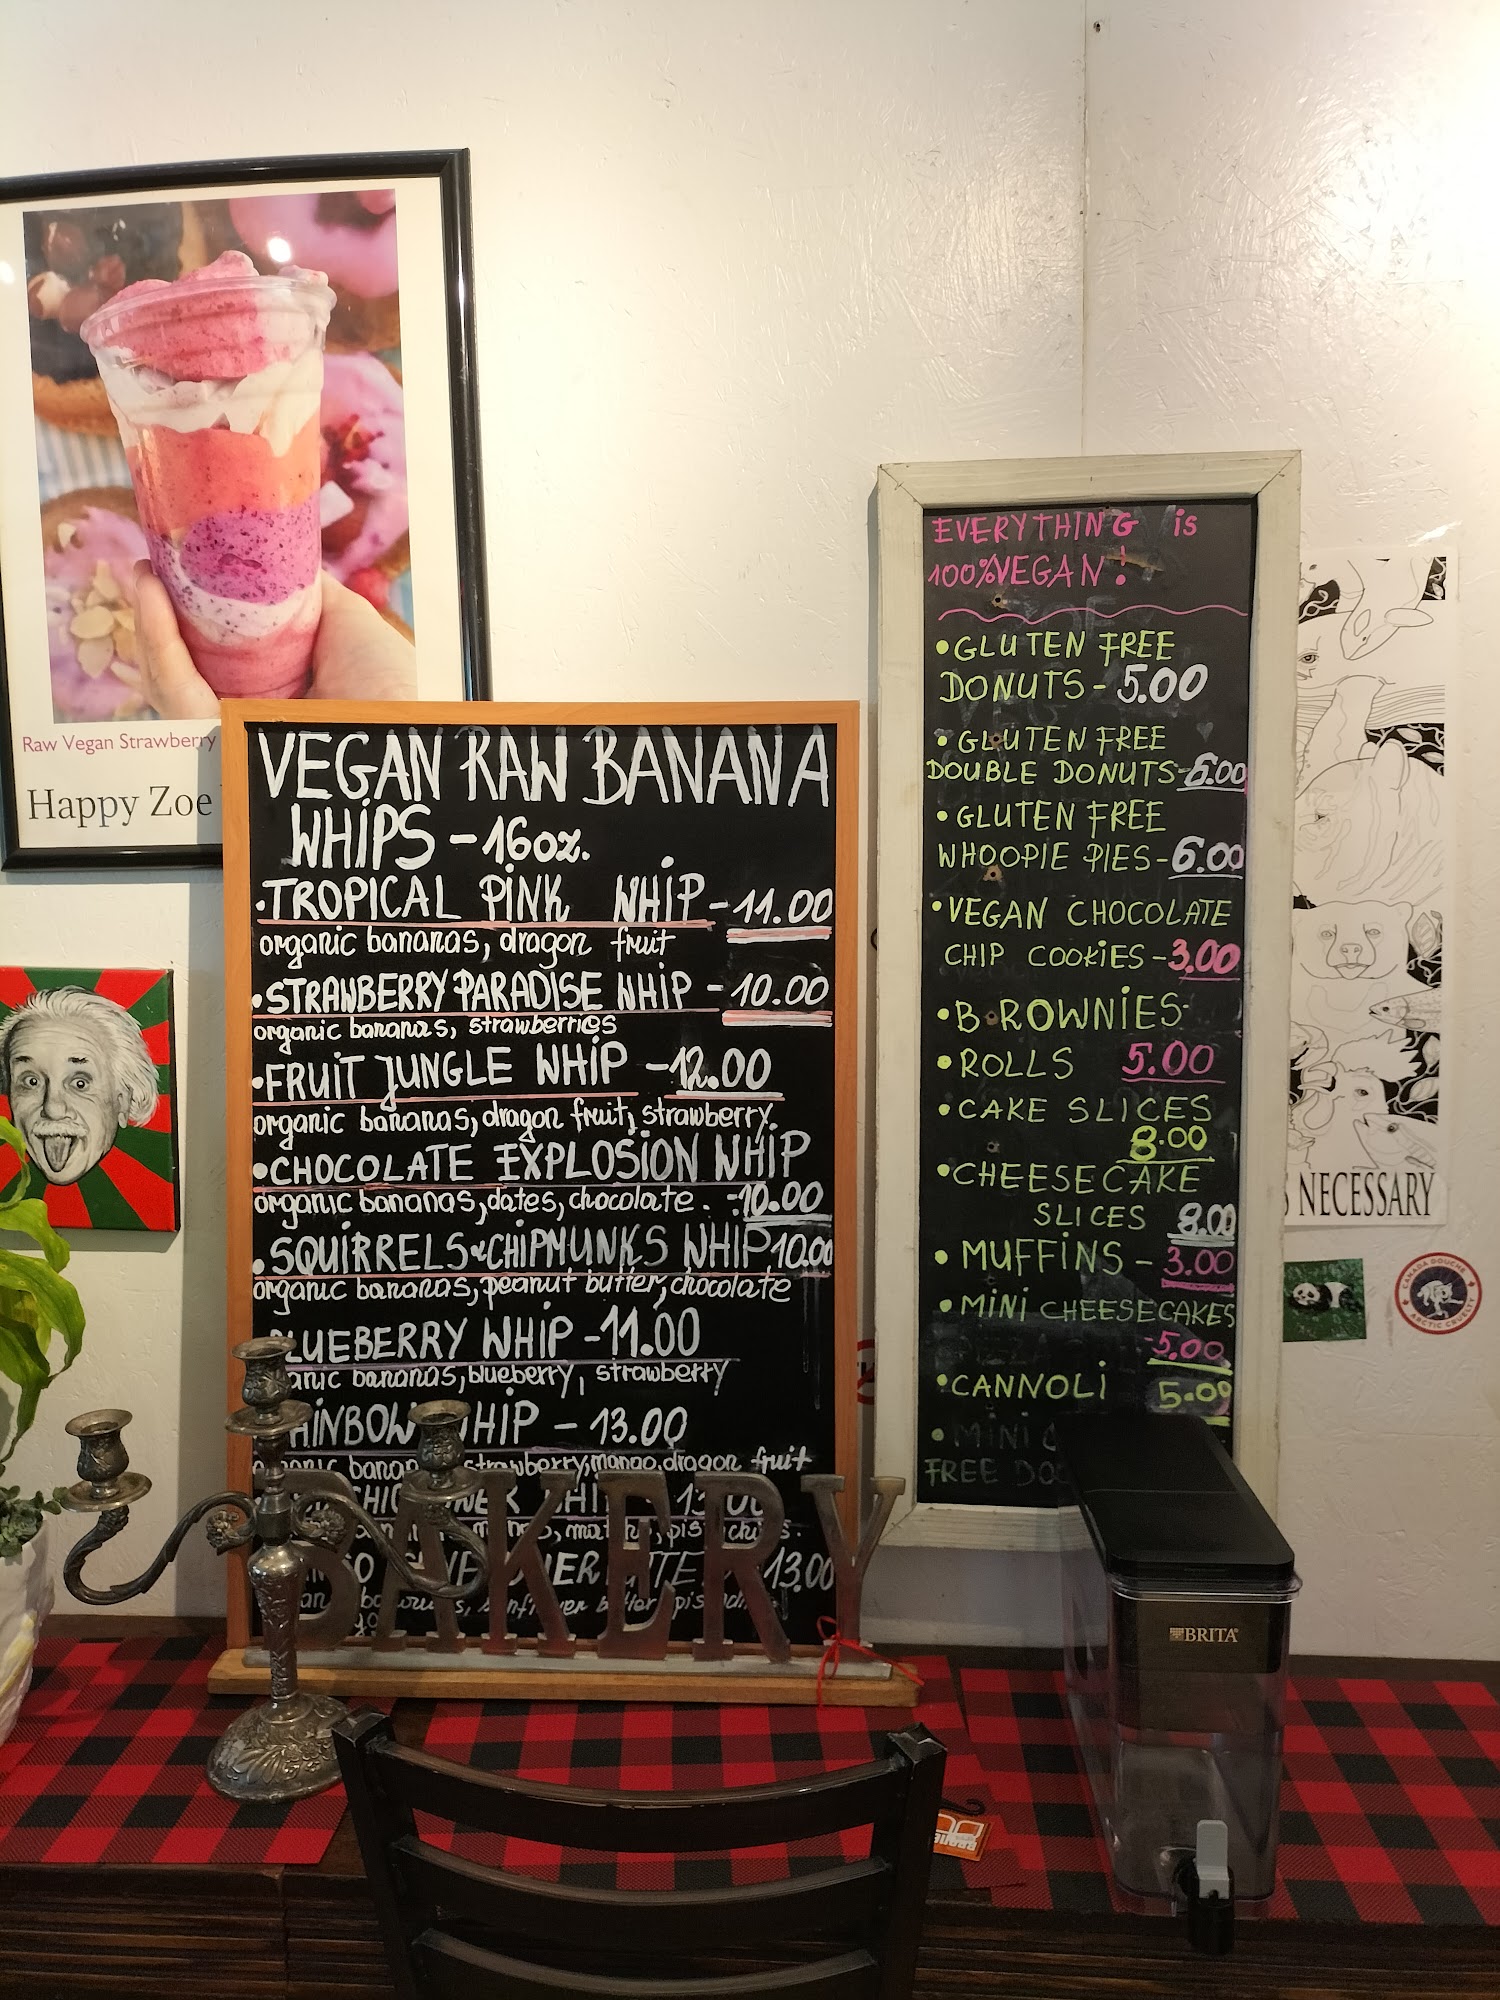 Raw Vegan Strawberry
Happy Zoe
VEGAN RAW BANANA
WHiPS - 16oz.
•TROPICAL PiNK WHiP - 11.00
organic bananas, dragon fruit
•STRAWBERRY PARADISE WHiP - 10.00
organic bananas, strawberries
•FRUiT JUNGLE WHiP - 12.00
organic bananas, dragon fruit, strawberry.
•CHOCOLATE EXPLOSiON WHiP
organic bananas, dates, chocolate. -10.00
•SQUiRRELS & CHiPMUNKS WHiP 10.00
organic bananas, peanut butter, chocolate
LUEBERRY WHiP - 11.00
anic bananas, blueberry, strawberry
AiNBOW WHiP - 13.00
strawberry, mango, dragon fruit
13.00
BAKERY
EVERYTHING is
100% VEGAN!
•GLUTEN FREE
DONUTS - 5.00
•GLUTEN FREE
DOUBLE DONUTS - 6.00
•GLUTEN FREE
WHOOPIE PIES - 6.00
•VEGAN CHOCOLATE
CHIP COOKiES - 3.00
•BROWNiES
•ROLLS 5.00
•CAKE SLICES
8.00
•CHEESECAKE
SLICES 8.00
•MUFFiNS - 3.00
•MiNi CHEESECAKES
-5.00
•CANNOLi 5.00
•MiNi
FREE DO
NECESSARY
CANADA DOUCHE
ARCTIC CRUELTY
BRITA